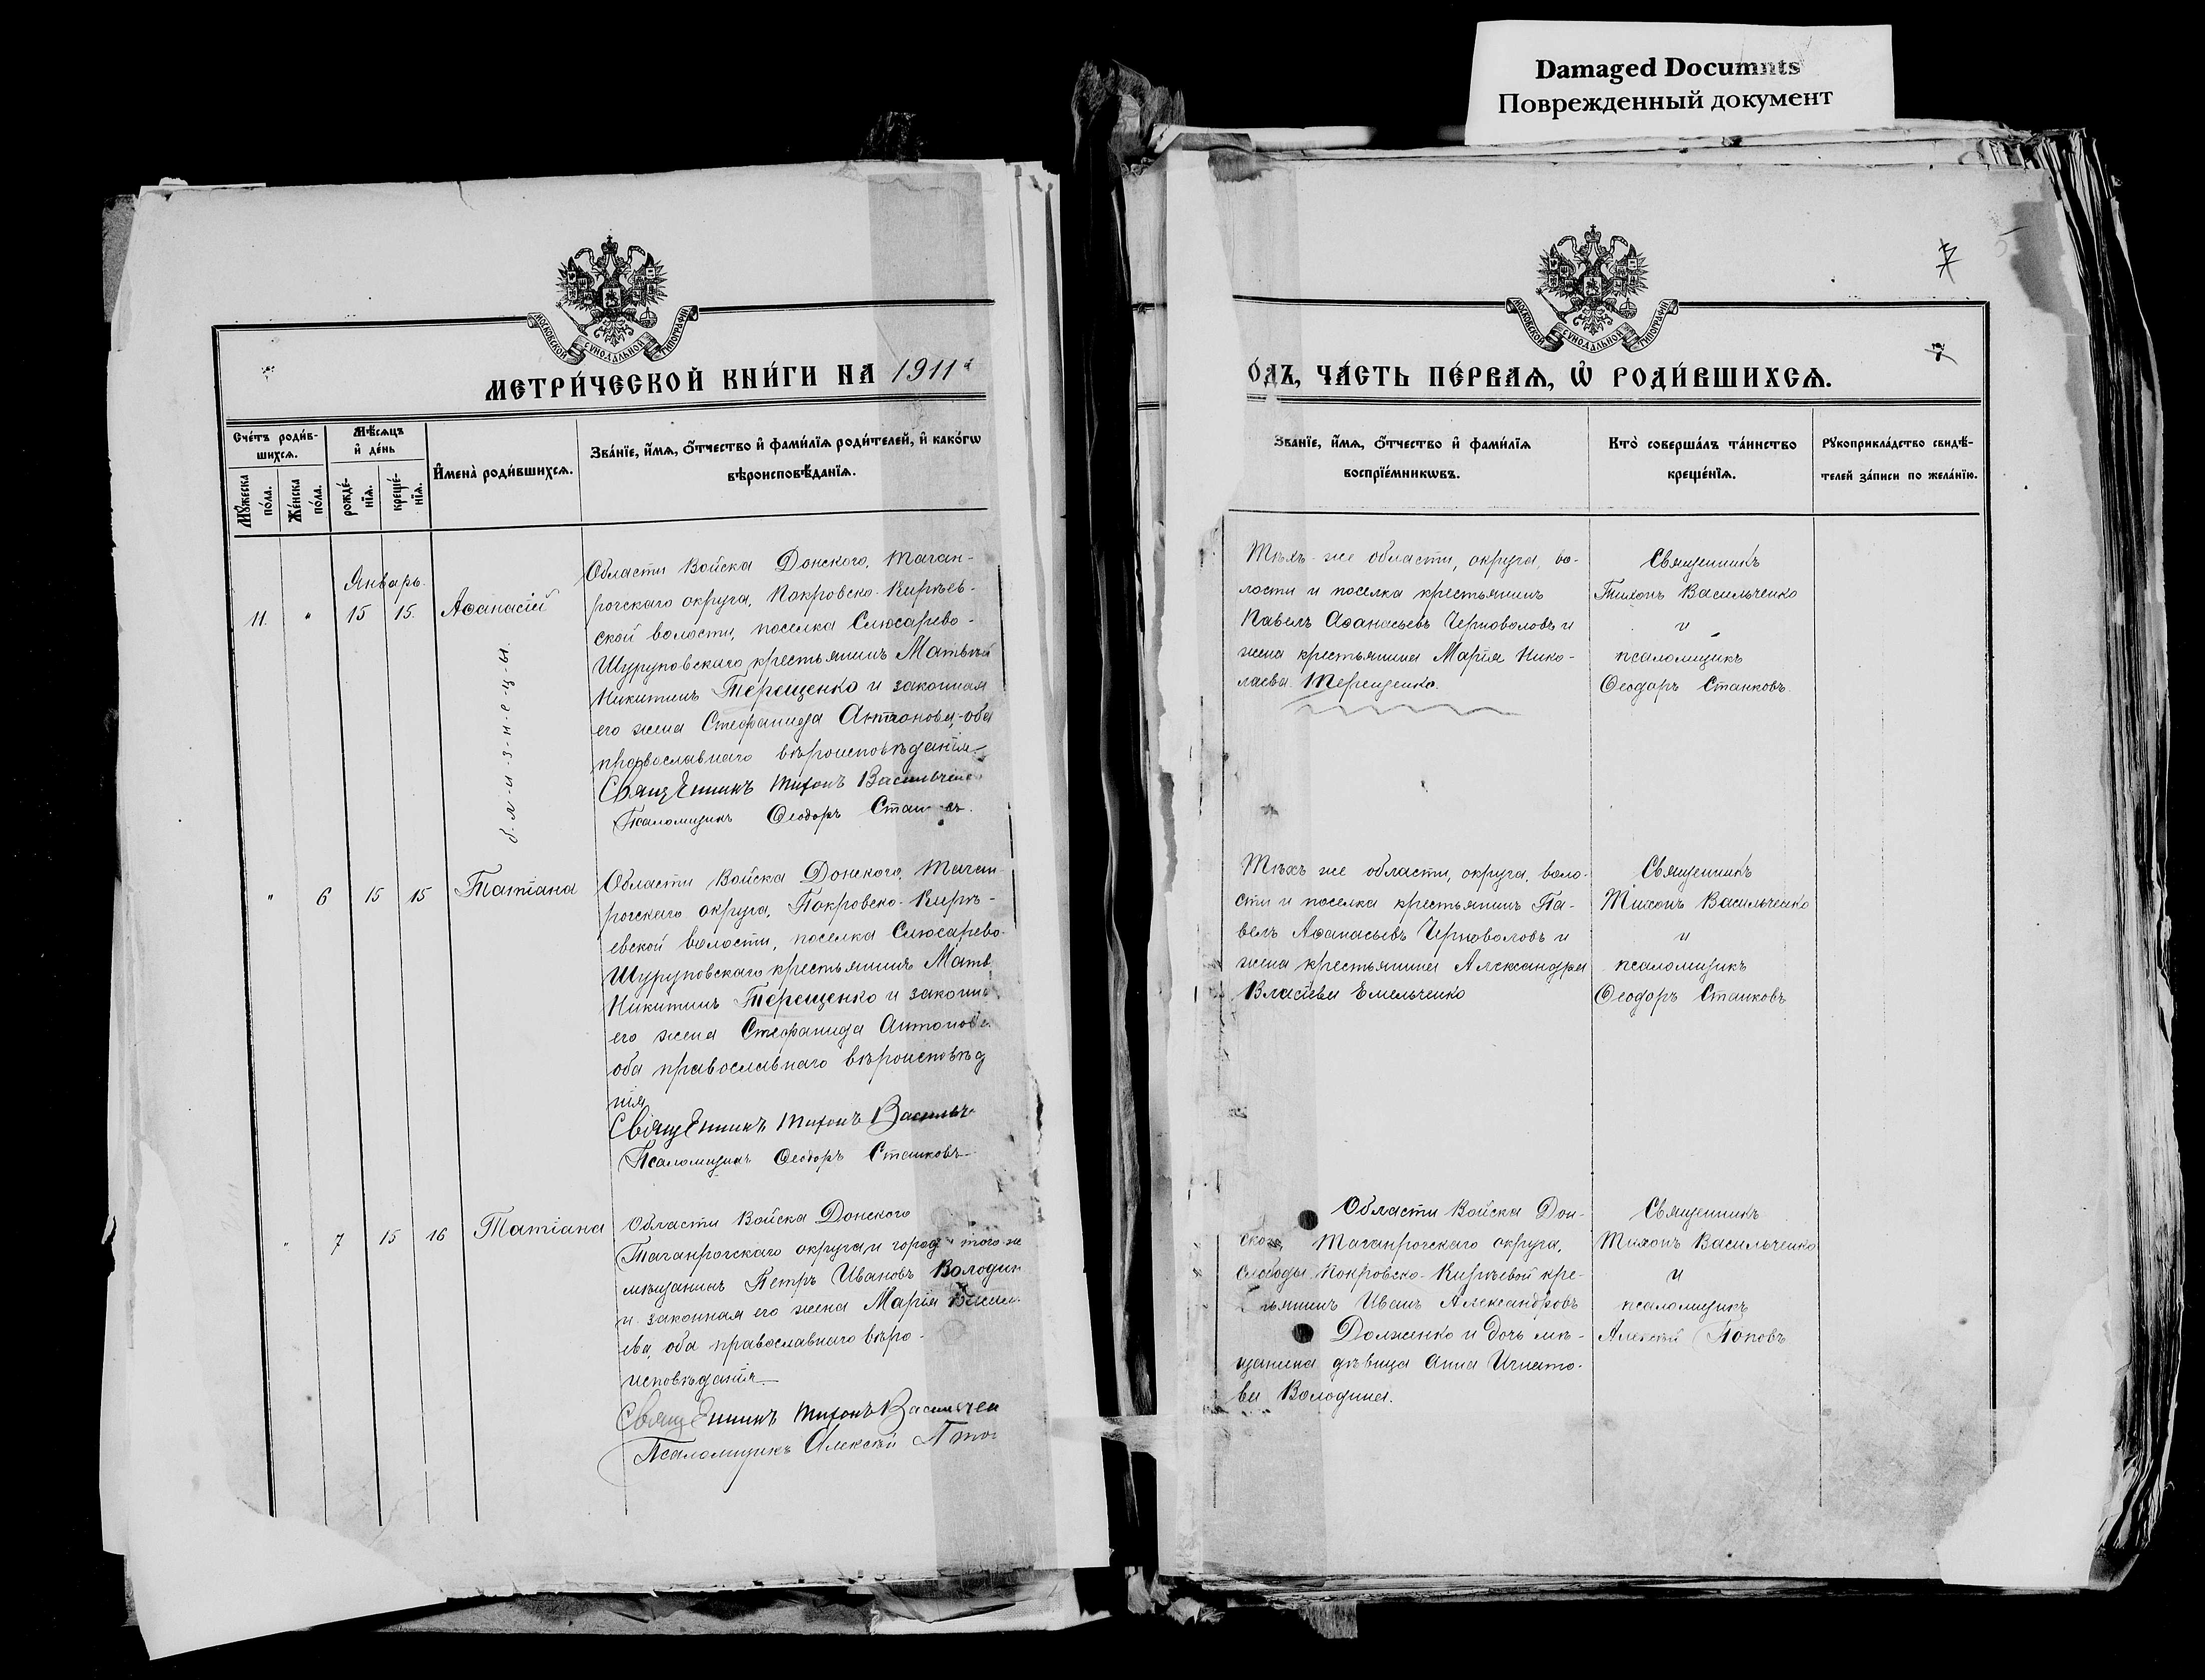 Damaged Documnts
Поврежденный документ
МОСКОВСКОЙ СѴНОДАЛЬНОЙ ТИПОГРАФІИ
МЕТРИ́ЧЕСКОЙ КНИ́ГИ НА 1911
Сче́тъ роди́в-
шихсѧ.
Мѣ́сѧцъ
и҆ де́нь
И҆мена̀ роди́вшихсѧ.
Зва́нїе, и҆́мѧ, ѻ҆́тчество и҆ фами́лїѧ роди́телей, и҆ како́гѡ
вѣроисповѣ́данїѧ.
Мꙋ́жеска
по́ла.
Же́нска
по́ла.
рожде́-
нїѧ.
креще́-
нїѧ.
Январь.
11. " 15 15. Аѳанасій
б-л-и-з-н-е-ц-ы.
Области Войска Донского, Таган-
рогскаго округа, Покровско-Кирѣев-
ской волости, поселка Слюсарево-
Шуруповскаго крестьянинъ Матвѣй
Никитинъ Терещенко и законная
его жена Стефанида Антонова,-оба
православнаго вѣроисповѣданія.
Священникъ Тихонъ Васильченко
Псаломщикъ Ѳеодоръ Станковъ.
" 6 15 15 Татіана
Области Войска Донского, Таган-
рогскаго округа, Покровско-Кирѣ-
евской волости, поселка Слюсарево-
Шуруповскаго крестьянинъ Матв
Никитинъ Терещенко и законна
его жена Стефанида Антонова
оба православнаго вѣроисповѣд
нія
Священникъ Тихонъ Васильч
Псаломщикъ Ѳеодоръ Станковъ
" 7 15 16 Татіана
Области Войска Донского
Таганрогскаго округа и город того же
мѣщанинъ Петръ Ивановъ Володин
и законная его жена Марія Васил
ева, оба православнаго вѣро-
исповѣданія.
Священникъ Тихонъ Васильчен
Псаломщикъ Алексѣй
7
7
МОСКОВСКОЙ СѴНОДАЛЬНОЙ ТИПОГРАФІИ
О́ДЪ, ЧА́СТЬ ПЕ́РВАѦ, Ѡ҆ РОДИ́ВШИХСѦ.
Зва́нїе, и҆́мѧ, ѻ҆́тчество и҆ фами́лїѧ
воспрїе́мникѡвъ.
Кто̀ соверша́лъ та́инство
креще́нїѧ.
Рꙋкоприкла́дство свидѣ́-
телей за́писи по жела́нїю.
Тѣхъ-же области, округа, во-
лости и поселка крестьянинъ
Павелъ Аѳанасьевъ Черноволовъ и
жена крестьянина Марія Нико-
лаева Терещенко.
Священникъ
Тихонъ Васильченко
и
псаломщикъ
Ѳеодоръ Станковъ.
Тѣхъ же области, округа, воло-
сти и поселка крестьянинъ Па-
велъ Аѳанасьевъ Черноволовъ и
жена крестьянина Александра
Власіева Емельченко
Священникъ
Тихонъ Васильченко
и
псаломщикъ
Ѳеодоръ Станковъ
Области Войска Дон-
ского, Таганрогскаго округа,
слободы Покровско-Кирѣевой кре-
тьянинъ Иванъ Александровъ
Долженко и дочь мѣ-
щанина дѣвица Анна Игнато-
ва Володина.
Священникъ
Тихонъ Васильченко
и
псаломщикъ
Алексѣй Поповъ